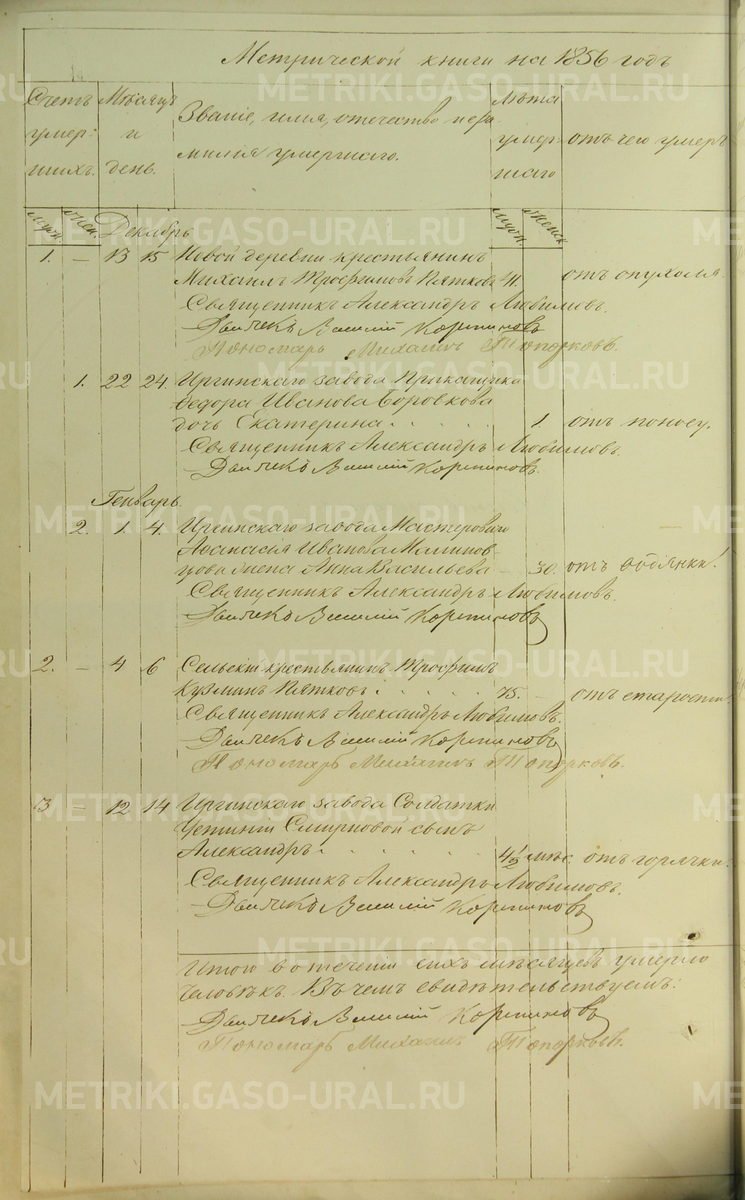 Метрической книги на 1856 годъ
Счетъ умер: шихъ. Мѣсяцъ и день. Званіе, имя, отечество и фамилія умершаго. Лѣта умершаго отъ чего умеръ
муж. жен. Декабрь муж. женск
1. — 13 15 Новой деревни крестьянинъ
Михаилъ Трофимовъ Пятковъ 41. отъ опухоли.
Священникъ Александръ Любимовъ.
Дьячекъ Василій
Пономарь Михаилъ Топорковъ.
1. 22 24. Иргинскаго завода Прикащика
Федора Иванова Боровкова
дочь Екатерина . . . . 1. отъ поносу.
Священникъ Александръ Любимовъ.
Дьячекъ Василій
Генварь.
2. 1. 4. Иргинскаго завода Мастероваго
Афанасія Иванова
жена Анна Васильева — 30. отъ водянки.
Священникъ Александръ Любимовъ.
Дьячекъ Василій
2. — 4 6 Сельскій крестьянинъ Трофимъ
Кузминъ Пятковъ . . . . . 75. — отъ старости.
Священникъ Александръ Любимовъ.
Дьячекъ Василій
Пономарь Михаилъ Топорковъ.
3 — 12 14 Иргинскаго завода Солдатки
Устиніи Смирновой сынъ
Александръ . . . . . 4½ мѣс. отъ горячки.
Священникъ Александръ Любимовъ.
Дьячекъ Василій
Итого в теченіи сихъ мѣсяцевъ умерло
человѣкъ. Въ чемъ свидѣтельствуемъ:
Дьячекъ Василій
Пономарь Михаилъ Топорковъ.
METRIKI.GASO-URAL.RU